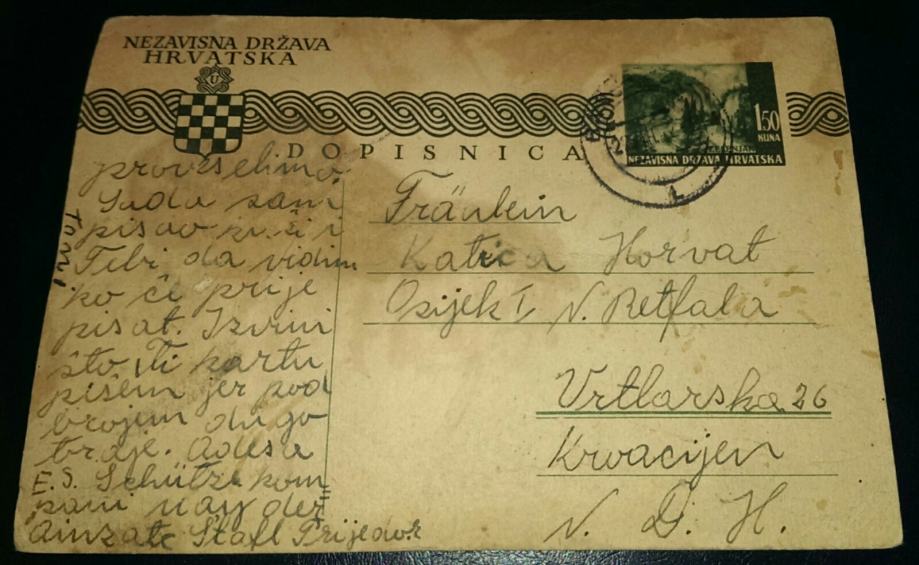 NEZAVISNA DRŽAVA
HRVATSKA
U
DOPISNICA
1.50
KUNA
NEZAVISNA DRŽAVA HRVATSKA
proveselimo
Sada sam
pisao
Tebi da vidim
ko će prije
pisat. Izvini
što Ti kartu
pišem jer pod
brojem dugo
traje. Adesa
E.S. Schütze kom
pani
Ainzatc Stafl Prijedor
Tomi
Fräulein
Katica Horvat
Osijek I, N. Retfala
Vrtlarska 26
Krvacijen
N. D. H.